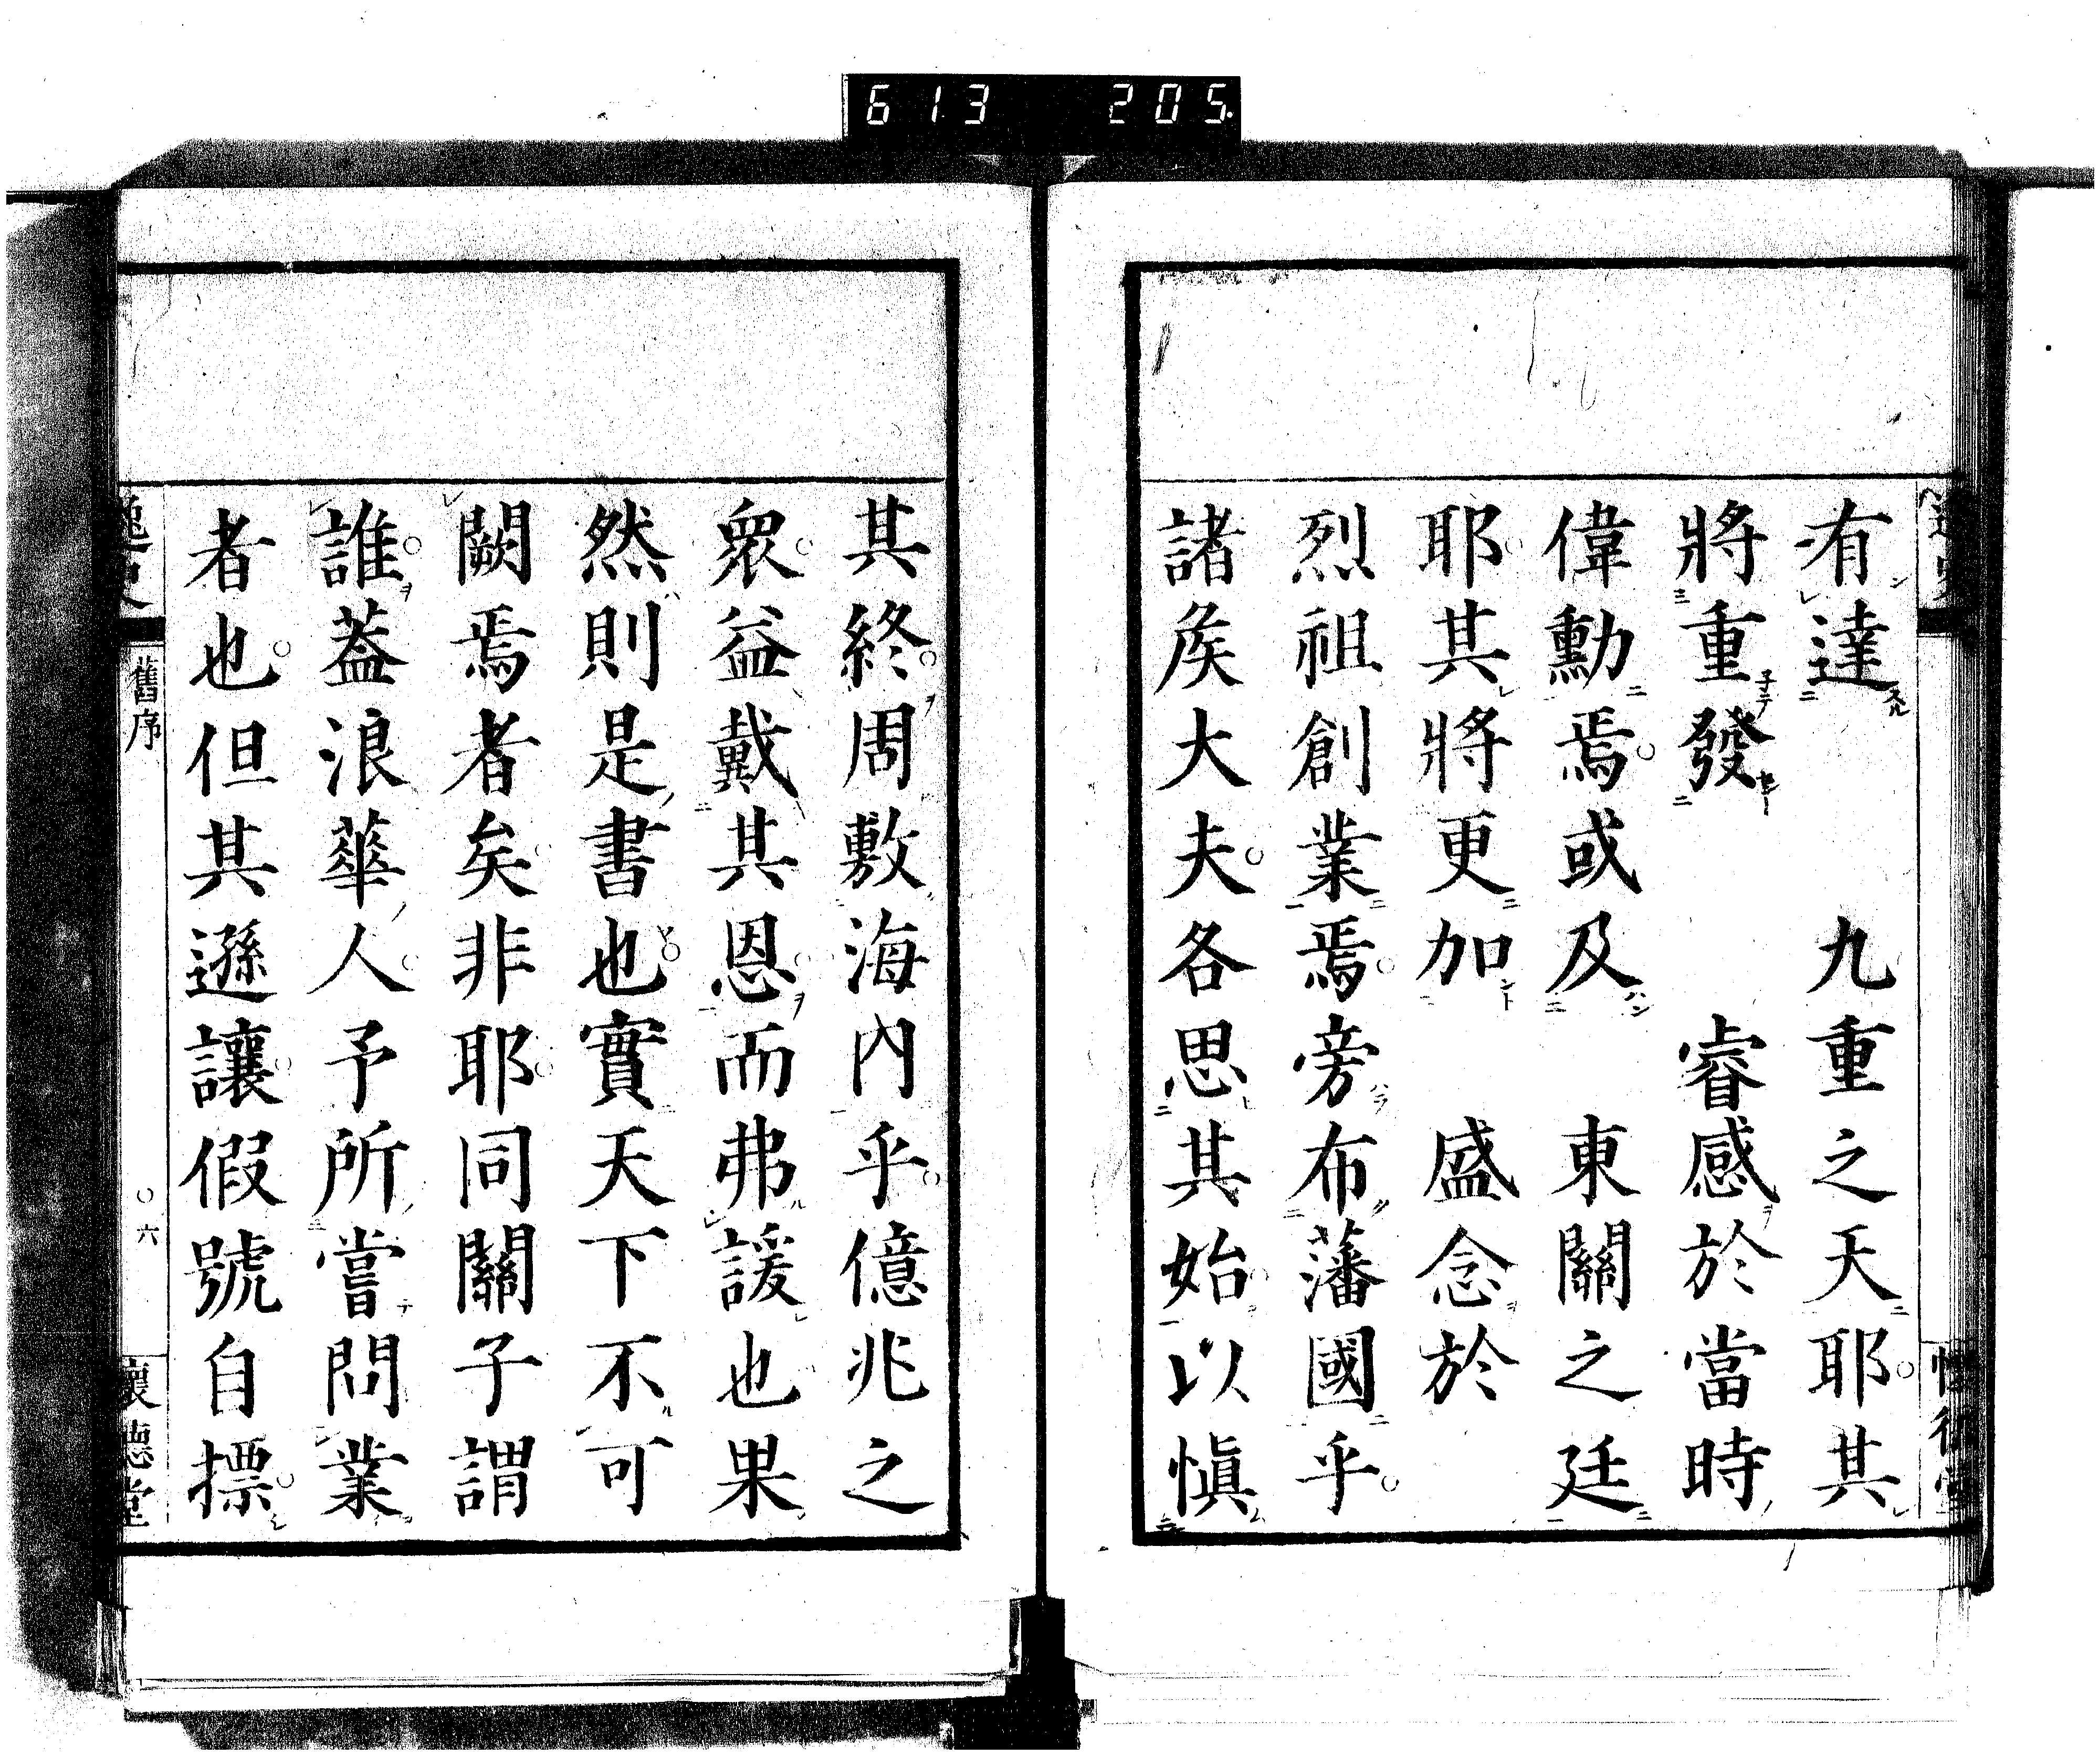 613 205
有達　九重之天耶其
將重發　睿感於當時
偉勳焉或及　東關之廷
耶其將更加　盛念於
烈祖創業焉旁布藩國乎
諸矦大夫各思其始以愼
其終周敷海內乎億兆之
衆益戴其恩而弗諼也果
然則是書也實天下不可
闕焉者矣非耶同關子謂
誰葢浪華人予所嘗問業
者也但其遜讓假號自摽
逸史
舊序
○六
懷德堂